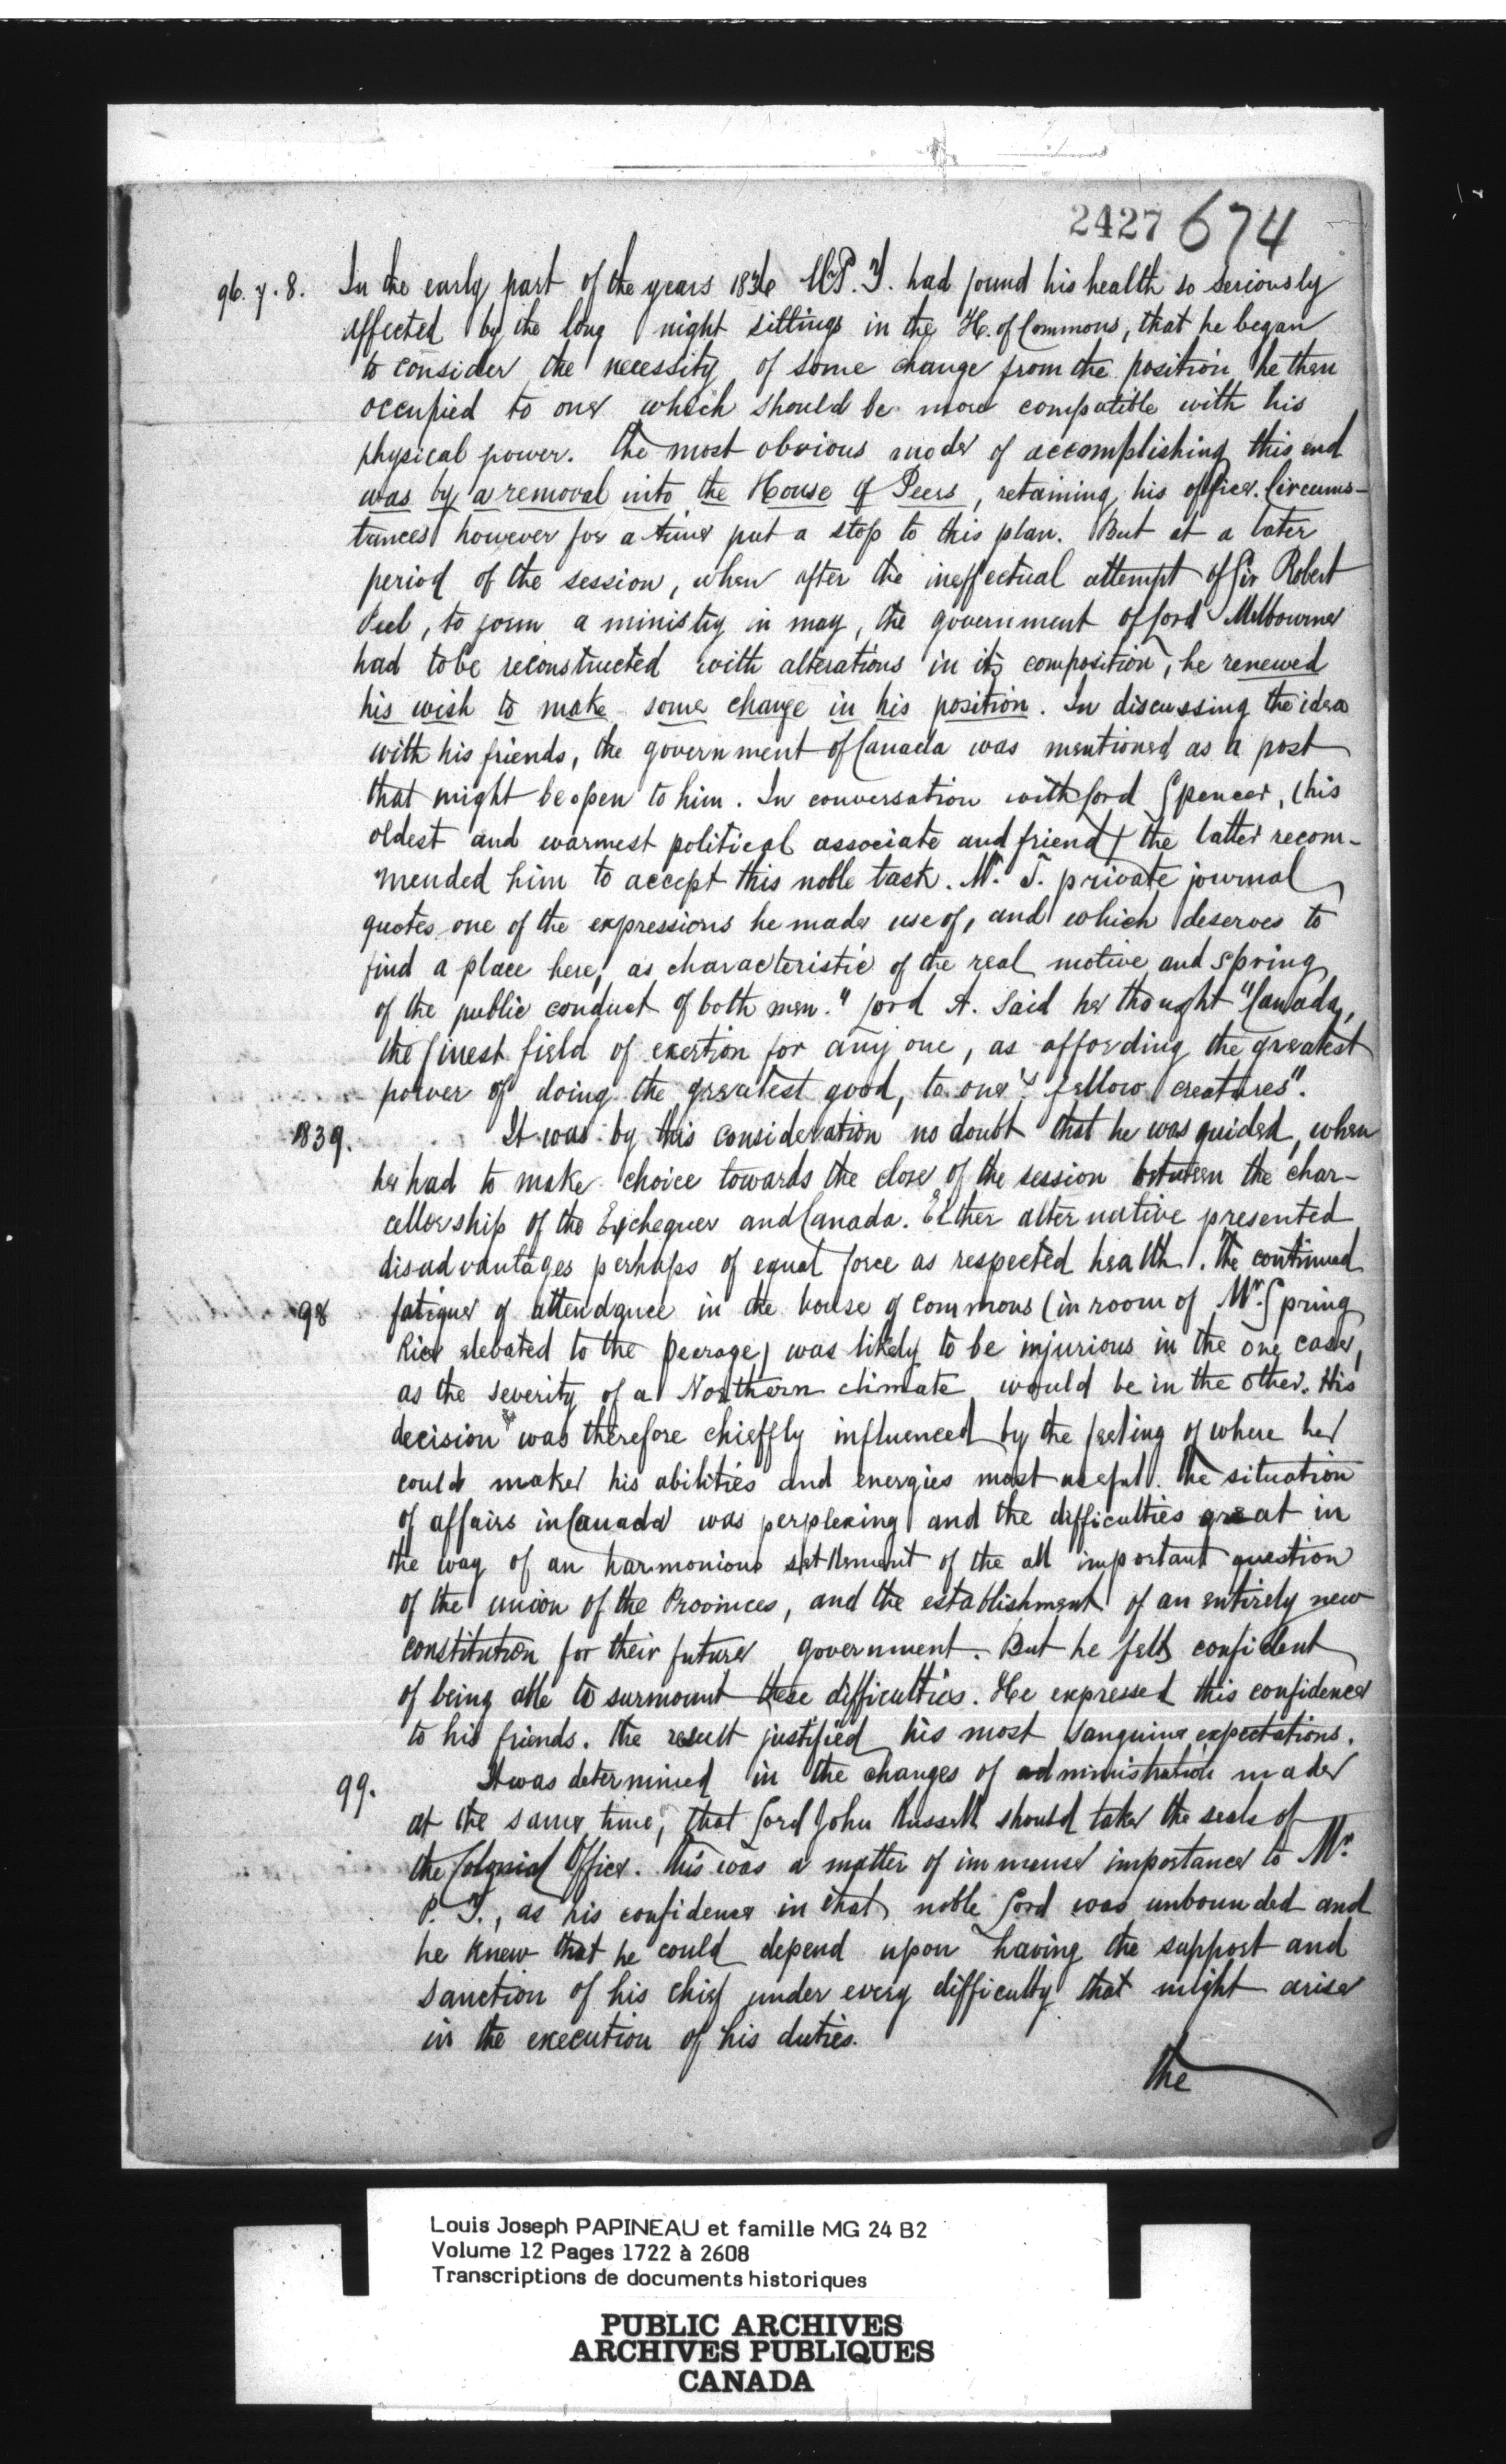 2427 674
96. 7. 8. In the early part of the years 1836 Mr P. T. had found his health so seriously
affected by the long night sittings in the H. of Commons, that he began
to consider the necessity of some change from the position he then
occupied to one which should be more compatible with his
physical power. the most obvious mode of accomplishing this end
was by a removal into the House of Peers, retaining his office. Circums-
tances however for a time put a stop to this plan. But at a later
period of the session, when after the ineffectual attempt of Sir Robert
Peel, to form a ministry in may, the government of Lord Melbourne
had to be reconstructed with alterations in its composition, he renewed
his wish to make some change in his position. In discussing the idea
with his friends, the government of Canada was mentioned as a post
that might be open to him. In conversation with Lord Spencer, (his
oldest and warmest political associate and friend) the latter recom-
mended him to accept this noble task. Mr. T. private journal
quotes one of the expressions he made use of, and which deserves to
find a place here, as characteristic of the real motive and spring
of the public conduct of both men. " Lord A. said he thought "Canada,
the finest field of exertion for any one, as affording the greatest
power of doing the greatest good, to one's fellow creatures".
1839. It was by this consideration no doubt that he was guided, when
he had to make choice towards the close of the session between the chan-
cellorship of the Exchequer and Canada. Either alternative presented
disadvantages perhaps of equal force as respected health. the continued
98 fatigue of attendance in the house of commons (in room of Mr. Spring
Rice elevated to the peerage) was likely to be injurious in the one case,
as the severity of a Northern climate would be in the other. His
decision was therefore chieffly influenced by the feeling of where he
could make his abilities and energies most useful. the situation
of affairs in Canada was perplexing and the difficulties great in
the way of an harmonious settlement of the all important question
of the union of the Provinces, and the establishment of an entirely new
constitution for their future government. But he felt confident
of being able to surmount these difficulties. He expressed this confidence
to his friends. the result justified his most sanguine expectations.
99. It was determined in the changes of administration made
at the same time, that Lord John Russell should take the seals of
the Colonial Office. this was a matter of immense importance to Mr.
P. T., as his confidence in that noble Lord was unbounded and
he knew that he could depend upon having the support and
sanction of his chief under every difficulty that might arise
in the execution of his duties.
the
Louis Joseph PAPINEAU et famille MG 24 B2
Volume 12 Pages 1722 à 2608
Transcriptions de documents historiques
PUBLIC ARCHIVES
ARCHIVES PUBLIQUES
CANADA